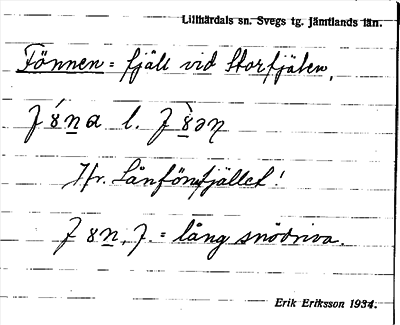 Lillhärdals sn. Svegs tg. Jämtlands län.
Fönnen = fjäll vid Storfjäten,
l.
Jfr. Lånfönnfjället!
f. = lång snödriva.
Erik Eriksson 1934.